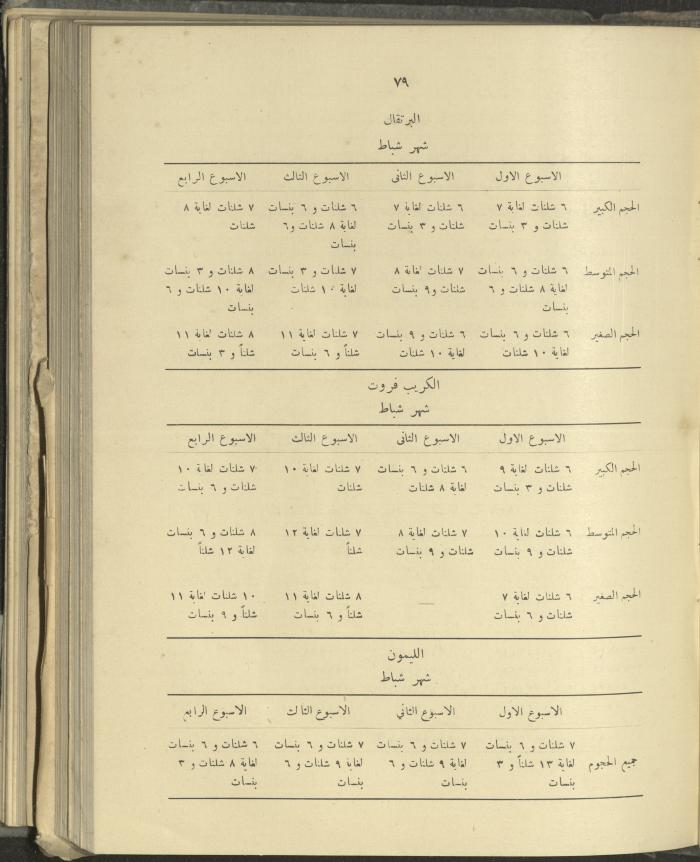 ٧٩
البرتقال
شهر شباط
الاسبوع الاول الاسبوع الثانى الاسبوع الثالث الاسبوع الرابع
الحجم الكبير ٦ شلنات لغاية ٧ ٦ شلنات لغاية ٧ ٦ شلنات و ٦ بنسات ٧ شلنات لغاية ٨
شلنات و ٣ بنسات شلنات و ٣ بنسات لغاية ٨ شلنات و ٦ شلنات
بنسات
الحجم المتوسط ٦ شلنات و ٦ بنسات ٧ شلنات لغاية ٨ ٧ شلنات و ٣ بنسات ٨ شلنات و ٣ بنسات
لغاية ٨ شلنات و ٦ شلنات و ٩ بنسات لغاية ١٠ شلنات لغاية ١٠ شلنات و ٦
بنسات بنسات
الحجم الصغير ٦ شلنات و ٦ بنسات ٦ شلنات و ٩ بنسات ٧ شلنات لغاية ١١ ٨ شلنات لغاية ١١
لغاية ١٠ شلنات لغاية ١٠ شلنات شلناً و ٦ بنسات شلناً و ٣ بنسات
الكريب فروت
شهر شباط
الاسبوع الاول الاسبوع الثانى الاسبوع الثالث الاسبوع الرابع
الحجم الكبير ٦ شلنات لغاية ٩ ٦ شلنات و ٦ بنسات ٧ شلنات لغاية ١٠ ٧ شلنات لغاية ١٠
شلنات و ٣ بنسات لغاية ٨ شلنات شلنات شلنات و ٦ بنسات
الحجم المتوسط ٦ شلنات لغاية ١٠ ٧ شلنات لغاية ٨ ٧ شلنات لغاية ١٢ ٨ شلنات و ٦ بنسات
شلنات و ٩ بنسات شلنات و ٩ بنسات شلناً لغاية ١٢ شلناً
الحجم الصغير ٦ شلنات لغاية ٧ — ٨ شلنات لغاية ١١ ١٠ شلنات لغاية ١١
شلنات و ٦ بنسات شلناً و ٦ بنسات شلناً و ٩ بنسات
الليمون
شهر شباط
الاسبوع الاول الاسبوع الثاني الاسبوع الثالث الاسبوع الرابع
٧ شلنات و ٦ بنسات ٧ شلنات و ٦ بنسات ٧ شلنات و ٦ بنسات ٦ شلنات و ٦ بنسات
جميع الحجوم لغاية ١٣ شلناً و ٣ لغاية ٩ شلنات و ٦ لغاية ٩ شلنات و ٦ لغاية ٨ شلنات و ٣
بنسات بنسات بنسات بنسات